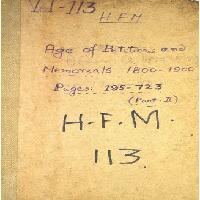 11-113
H.F.M
Age of Bttters and
Memorials 1800-1900
Pages: 195-723
(Part-II)
H.F.M.
113.